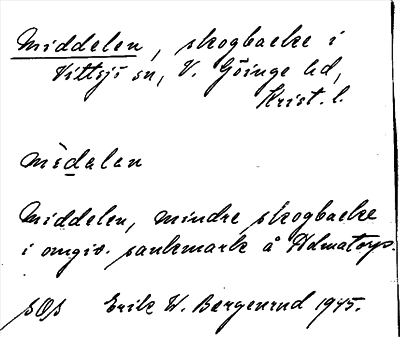 Middelen, skogbacke i
Vittsjö sn, V. Göinge hd,
Krist. l.
mèdalan
Middelen, mindre skogbacke
i omgiv. sankmark å Holmatorp.
SOS Erik W. Bergenrud 1945.